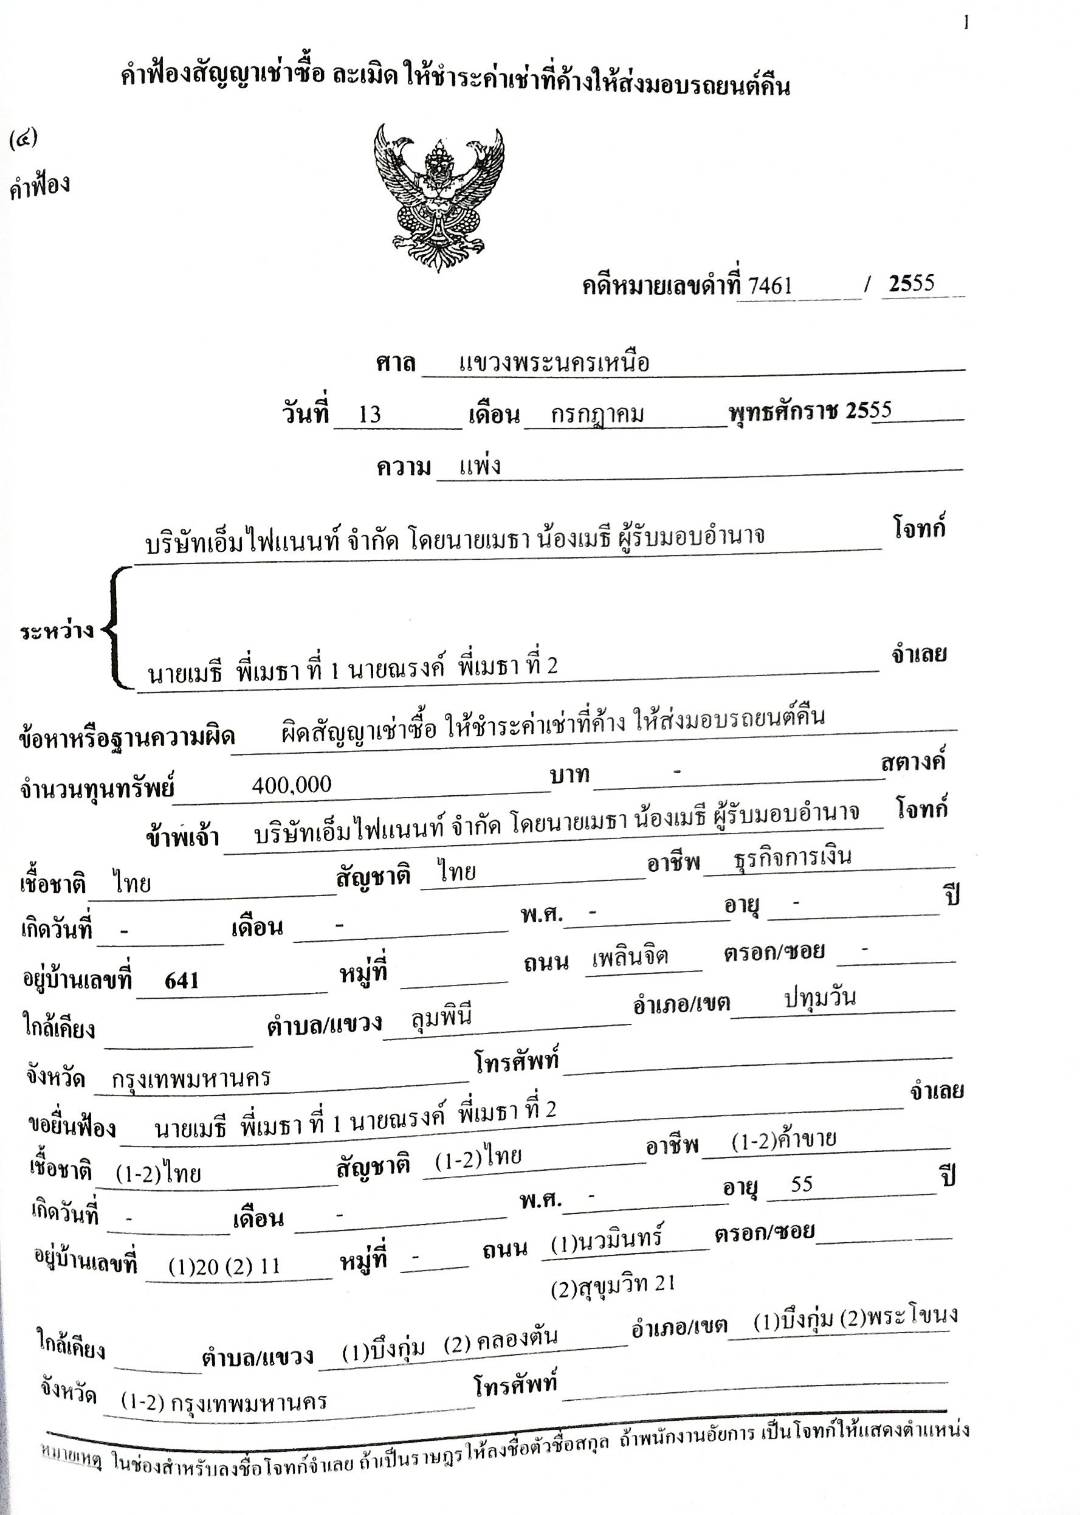 1
คำฟ้องสัญญาเช่าซื้อ ละเมิด ให้ชำระค่าเช่าที่ค้างให้ส่งมอบรถยนต์คืน
(๔)
คำฟ้อง
คดีหมายเลขดำที่ 7461 / 2555
ศาล แขวงพระนครเหนือ
วันที่ 13 เดือน กรกฎาคม พุทธศักราช 2555
ความ แพ่ง
บริษัทเอ็มไฟแนนท์ จำกัด โดยนายเมธา น้องเมธี ผู้รับมอบอำนาจ โจทก์
ระหว่าง
นายเมธี พี่เมธา ที่ 1 นายณรงค์ พี่เมธา ที่ 2 จำเลย
ข้อหาหรือฐานความผิด ผิดสัญญาเช่าซื้อ ให้ชำระค่าเช่าที่ค้าง ให้ส่งมอบรถยนต์คืน
จำนวนทุนทรัพย์ 400,000 บาท - สตางค์
ข้าพเจ้า บริษัทเอ็มไฟแนนท์ จำกัด โดยนายเมธา น้องเมธี ผู้รับมอบอำนาจ โจทก์
เชื้อชาติ ไทย สัญชาติ ไทย อาชีพ ธุรกิจการเงิน
เกิดวันที่ - เดือน - พ.ศ. - อายุ - ปี
อยู่บ้านเลขที่ 641 หมู่ที่ ถนน เพลินจิต ตรอก/ซอย -
ใกล้เคียง ตำบล/แขวง ลุมพินี อำเภอ/เขต ปทุมวัน
จังหวัด กรุงเทพมหานคร โทรศัพท์
ขอยื่นฟ้อง นายเมธี พี่เมธา ที่ 1 นายณรงค์ พี่เมธา ที่ 2 จำเลย
เชื้อชาติ (1-2)ไทย สัญชาติ (1-2)ไทย อาชีพ (1-2)ค้าขาย
เกิดวันที่ - เดือน - พ.ศ. - อายุ 55 ปี
อยู่บ้านเลขที่ (1)20 (2) 11 หมู่ที่ - ถนน (1)นวมินทร์ ตรอก/ซอย
(2)สุขุมวิท 21
ใกล้เคียง ตำบล/แขวง (1)บึงกุ่ม (2) คลองตัน อำเภอ/เขต (1)บึงกุ่ม (2)พระโขนง
จังหวัด (1-2) กรุงเทพมหานคร โทรศัพท์
หมายเหตุ ในช่องสำหรับลงชื่อโจทก์จำเลย ถ้าเป็นราษฎรให้ลงชื่อตัวชื่อสกุล ถ้าพนักงานอัยการ เป็นโจทก์ให้แสดงตำแหน่ง